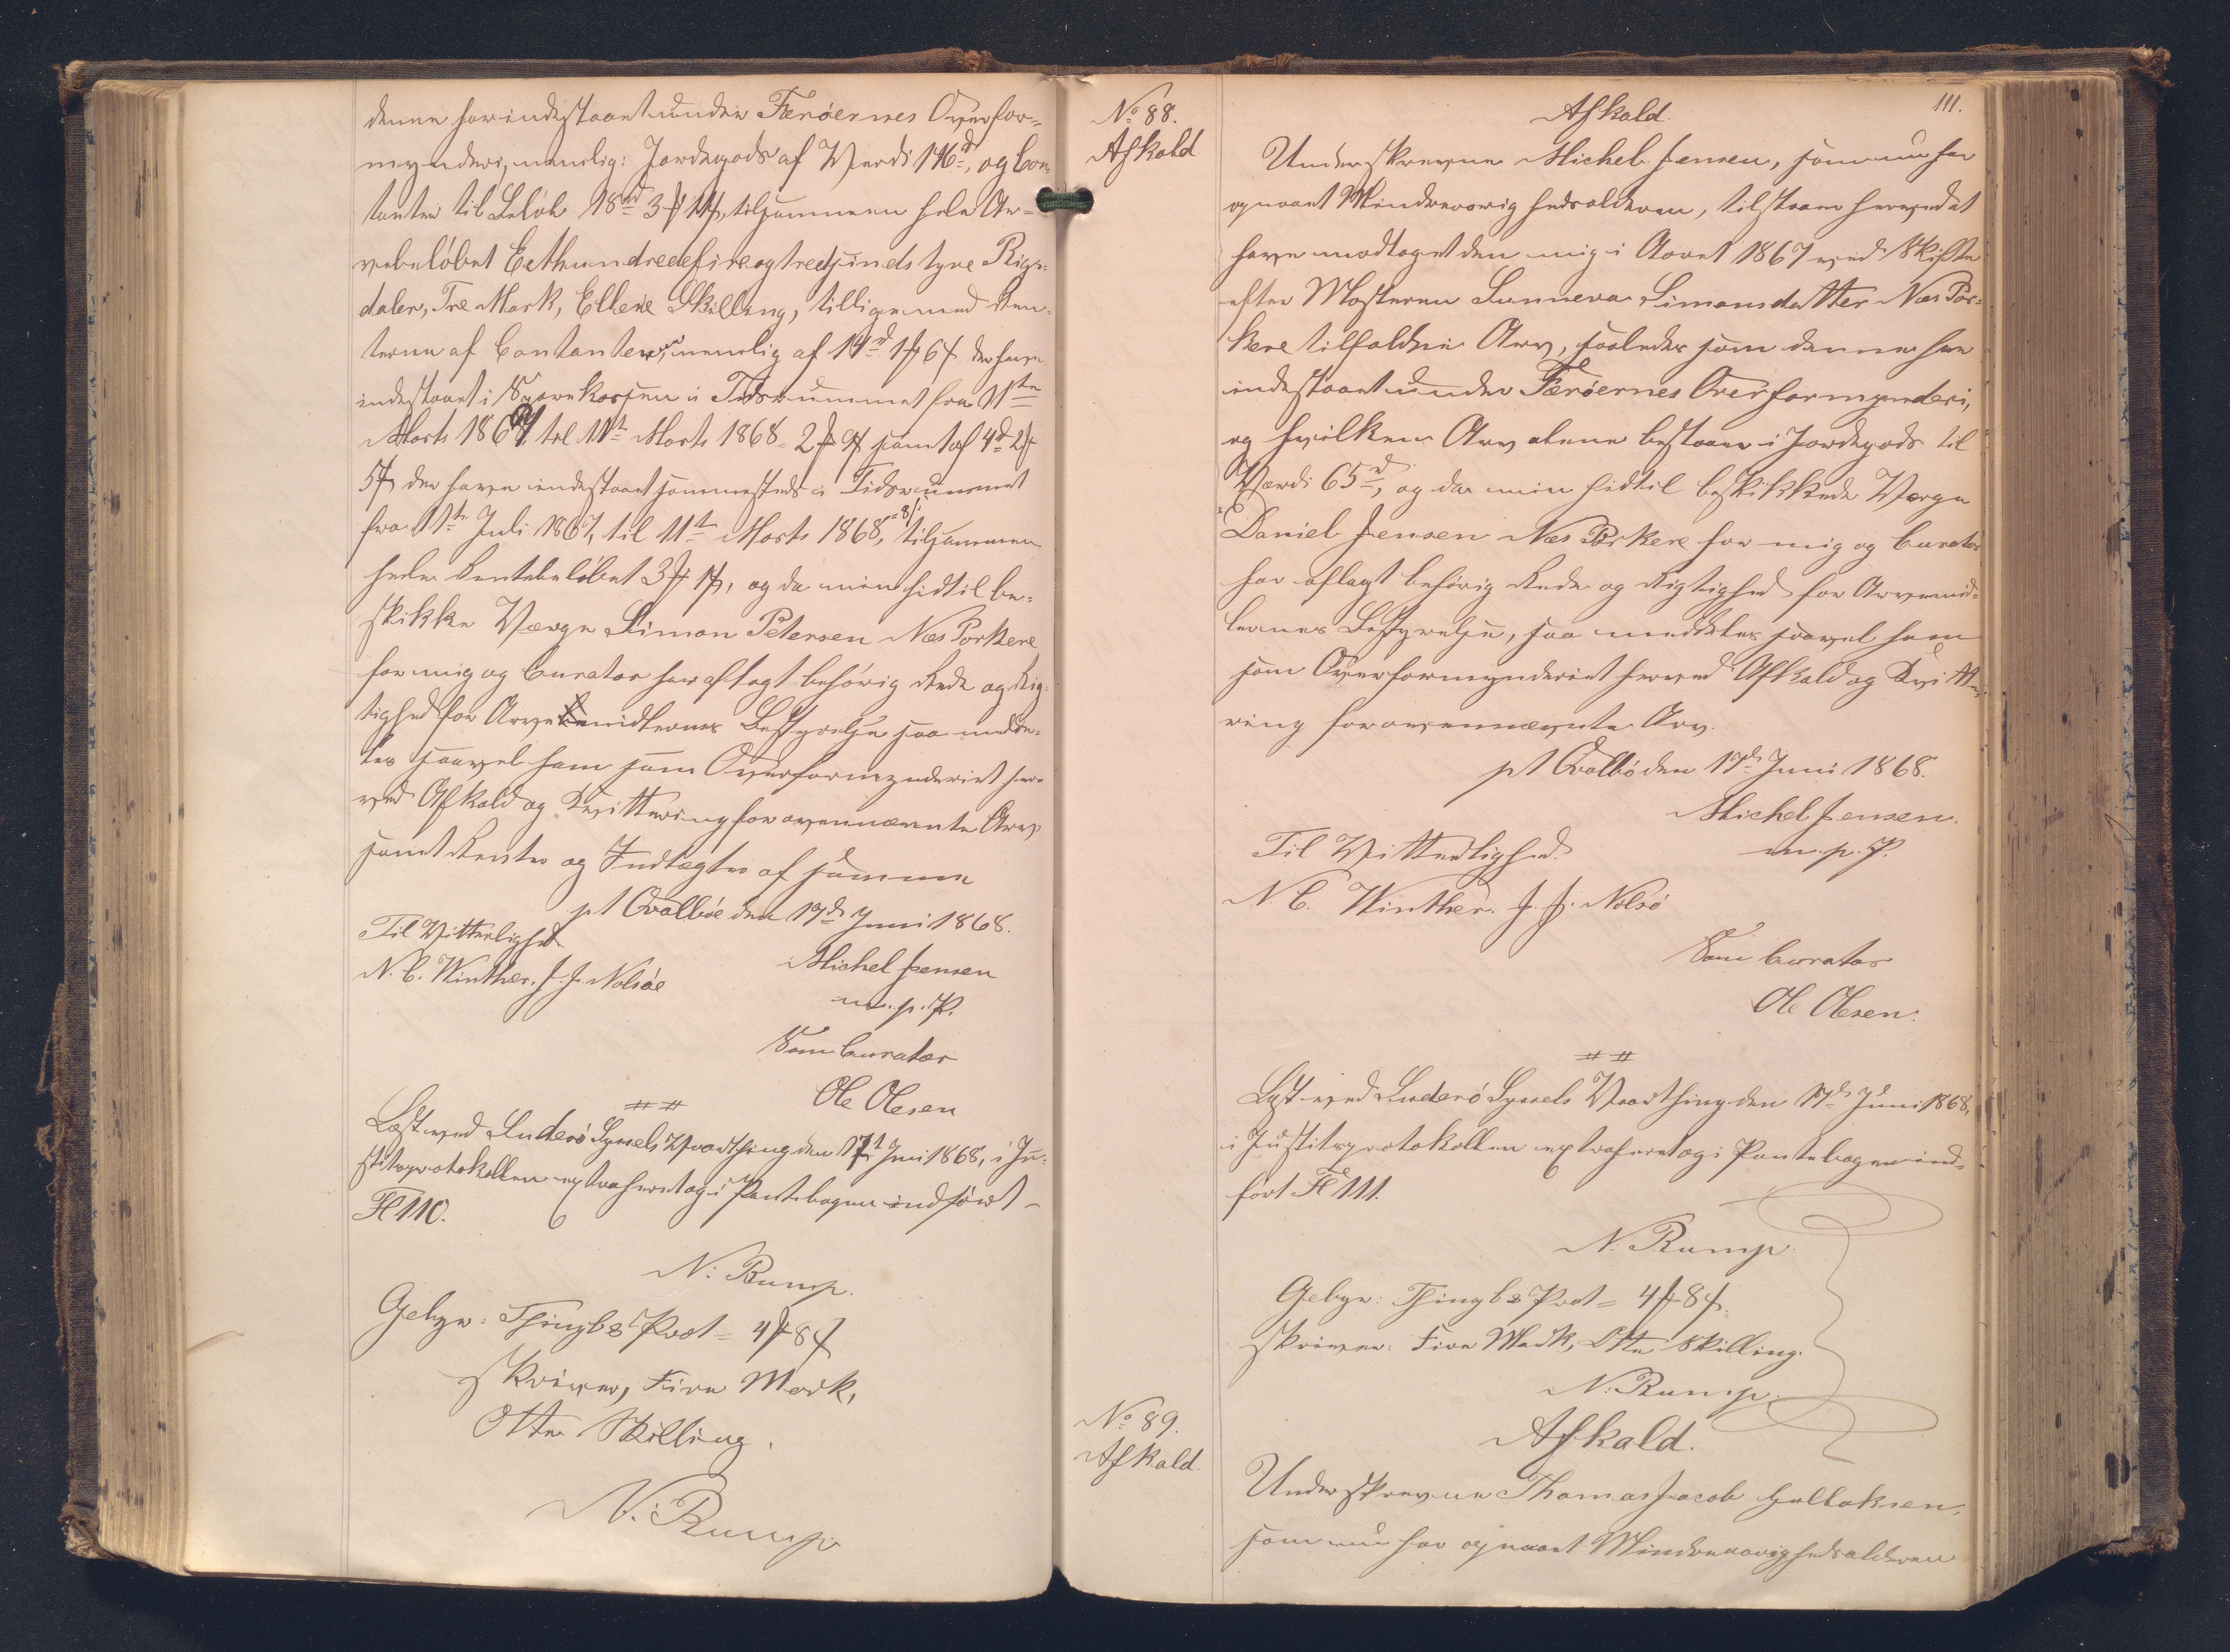 denne har indestaaet under Færøernes Overfor=
mynderi, nemlig: Jordegods af Værdi 116 rd, og Con
tanter til Beløb 18 rd 3 ℳ 11 ß, tilsammen hele Ar=
vebeløbet Eethundredefireogtredsindstyve Rigs=
daler, Tre Mark, Elleve Skilling, tilligemed Ren=
terne af Contanterne, nemlig af 14 rd 1 ℳ 6 ß der have
indestaaet i Sparekassen i Tidsrummet fra 11te
Marts 1867 til 11te Marts 1868 = 2 ℳ 9 ß samt af 4 rd 2 ℳ
5 ß der have indestaaet sammesteds i Tidsrummet
fra 11te Juli 1867, til 11te Marts 1868, = 8 ß: tilsammen
hele Rentebeløbet 3 ℳ 1 ß, og da min hidtil be=
skikke Værge Simon Petersen Næs Porkere
for mig og Curator har aflagt behørig Rede og Rig=
tighed for Arvemidlernes Bestyrelse saa medde=
les saavel ham som Overformynderiet her=
ved Afkald og Kvittering for ovennævnte Arv
samt Renter og Indtægter af samme
pt Qvalbøe den 17de Juni 1868.
Til Vitterlighed
N. C. Winther. J. J. Nolsøe
Michel Jensen
m. p. P.
Som Curator
Ole Olesen
Læst ved Suderø Syssels Vaarthing den 17de Juni 1868, i Ju=
stitsprotokollen extraheret og i Pantebogen indført -
Fl 110.
N: Rump.
Gebyr: Thingl & Prot = 4 ℳ 8 ß
skriver, Fire Mark,
Otte Skilling.
N: Rump
No 88.
Afkald
111.
Afkald.
Underskrevne Michel Jensen, som nu har
opnaaet Mindreaarighedsalderen, tilstaaer herved at
have modtaget den mig i Aaret 1867 ved Skifte
efter Mosteren Sunneva Simonsdatter Næs Por=
kere tilfaldne Arv, saaledes som denne har
indestaaet under Færøernes Overformynderi,
og hvilken Arv alene bestaaer i Jordegods til
Værdi 65 rd, og da min hidtil beskikkede Værge
Daniel Jensen Næs Porkere for mig og Curator
har aflagt behørig Rede og Rigtighed for Arvemid=
lernes Bestyrelse, saa meddeles saavel ham
som Overformynderiet herved Afkald og Kvitte
ring for ovennævnte Arv.
pt Qvalbø den 17de Juni 1868.
Michel Jensen.
m. p. P.
Til Vitterlighed.
N C. Winther. J. J. Nolsø
Som Curator
Ole Olesen.
Læst ved Suderø Syssels Vaarthing den 17de Juni 1868,
i Justitsprotokollen extraheret og i Pantebogen ind=
ført Fl 111.
N. Rump.
Gebyr: Thingl & Prot = 4 ℳ 8 ß.
skriver: Fire Mark, Otte Skilling.
N: Rump.
No 89.
Afkald.
Afkald.
Underskrevne Thomas Jacob
som nu har opnaaet Mindreaarighedsalderen